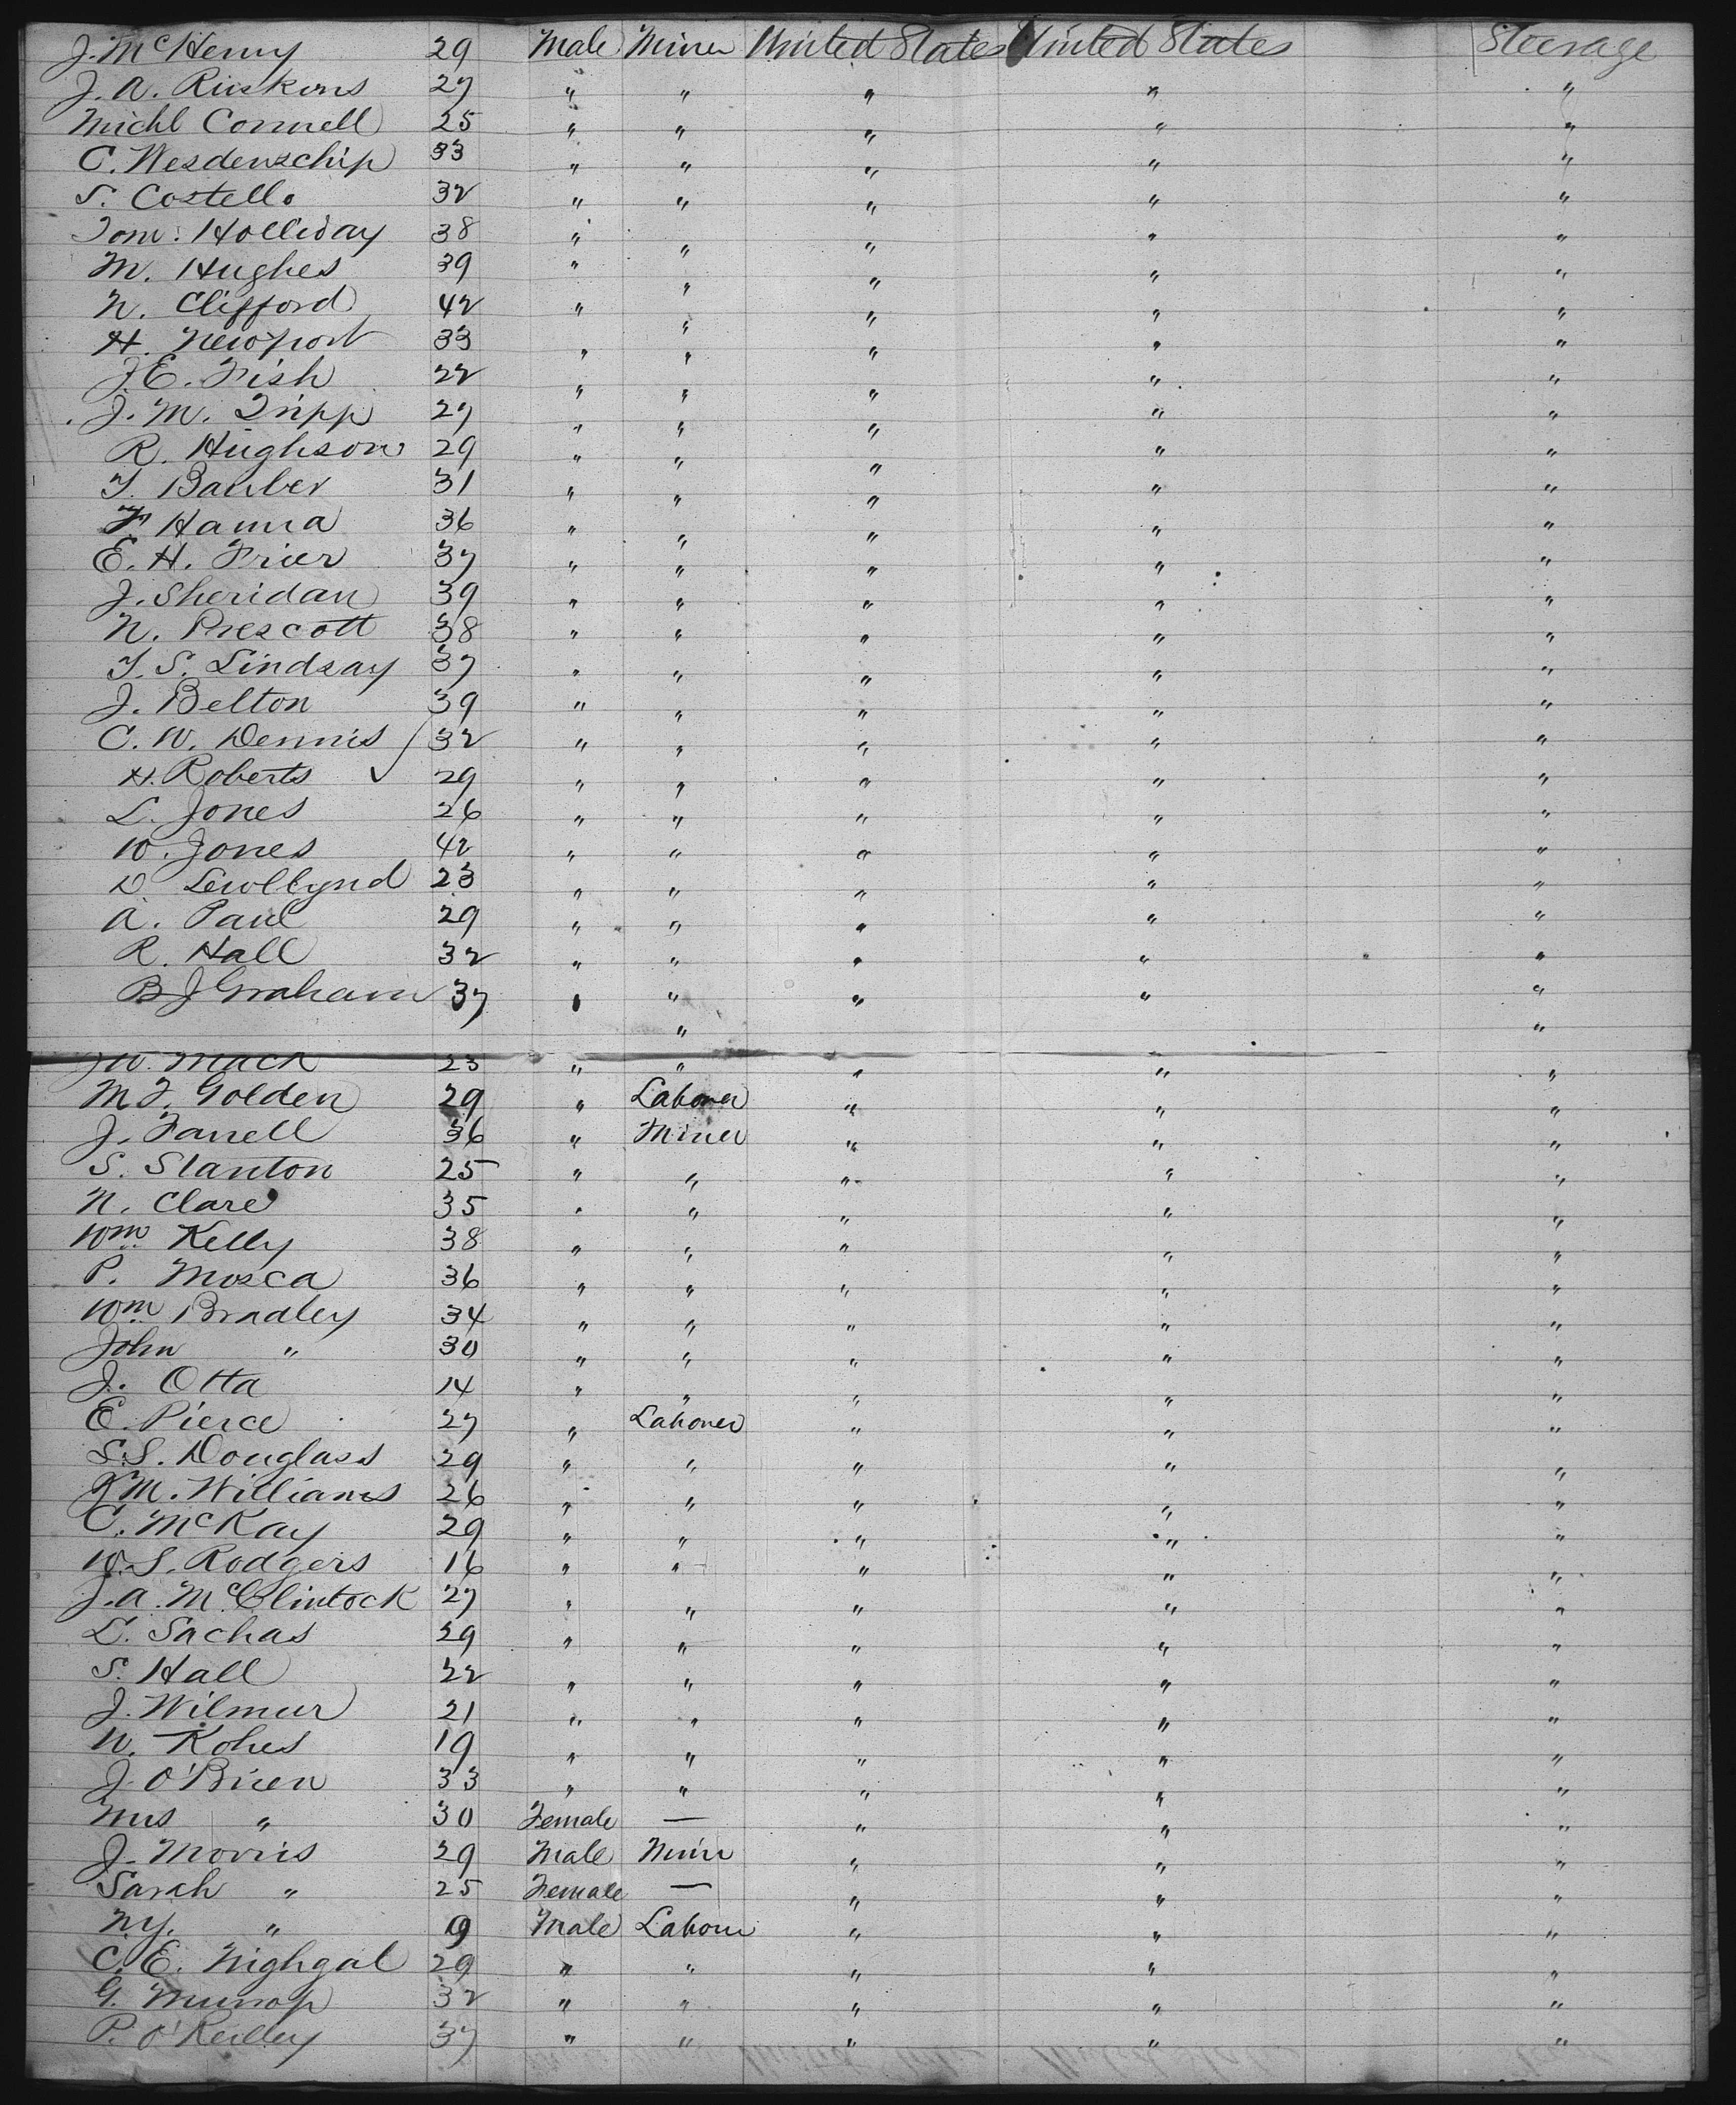 J. McHenry 29 Male Miner United States United States Steerage
J. A. Ruskins 27 " " " " "
Michl Connell 25 " " " " "
C. Wesdenschip 33 " " " " "
S. Costello 32 " " " " "
Tom. Holliday 38 " " " " "
M. Hughes 39 " " " " "
N. Clifford 42 " " " " "
H. Newport 33 " " " " "
J. E. Fish 22 " " " " "
J. M. Tripp 27 " " " " "
R. Hughson 29 " " " " "
T. Barber 31 " " " " "
Hanna 36 " " " " "
E. H. Frier 37 " " " " "
J. Sheridan 39 " " " " "
N. Prescott 38 " " " " "
T. S. Lindsay 37 " " " " "
J. Belton 39 " " " " "
C. W. Dennis 32 " " " " "
H. Roberts 29 " " " " "
L. Jones 26 " " " " "
W. Jones 42 " " " " "
D Lewllynd 23 " " " " "
A. Paul 29 " " " " "
R. Hall 32 " " " " "
B J Graham 37 " " " " "
" "
J W. Mack 23 " " " " "
M T. Golden 29 " Laborer " " "
J. Farrell 36 " Miner " " "
S. Stanton 25 " " " " "
N. Clare 35 " " " " "
Wm Kelly 38 " " " " "
P. Mosca 36 " " " " "
Wm Bradley 34 " " " " "
John " 30 " " " " "
J. Otta 14 " " " " "
E. Pierce 27 " Laborer " " "
S. S. Douglass 29 " " " " "
J M. Williams 26 " " " " "
C. McKay 29 " " " " "
W. S. Rodgers 16 " " " " "
J. A. McClintock 27 " " " " "
L. Sachas 29 " " " " "
S. Hall 22 " " " " "
J. Wilmur 21 " " " " "
W. Kohes 19 " " " " "
J. O'Brien 33 " " " " "
Mrs " 30 Female — " " "
J. Morris 29 Male Miner " " "
Sarah " 25 Female — " " "
Wy. " 9 Male Labour " " "
C. E. Nighgal 29 " " " " "
G. Munop 32 " " " " "
P. O'Reilley 37 " " " " "